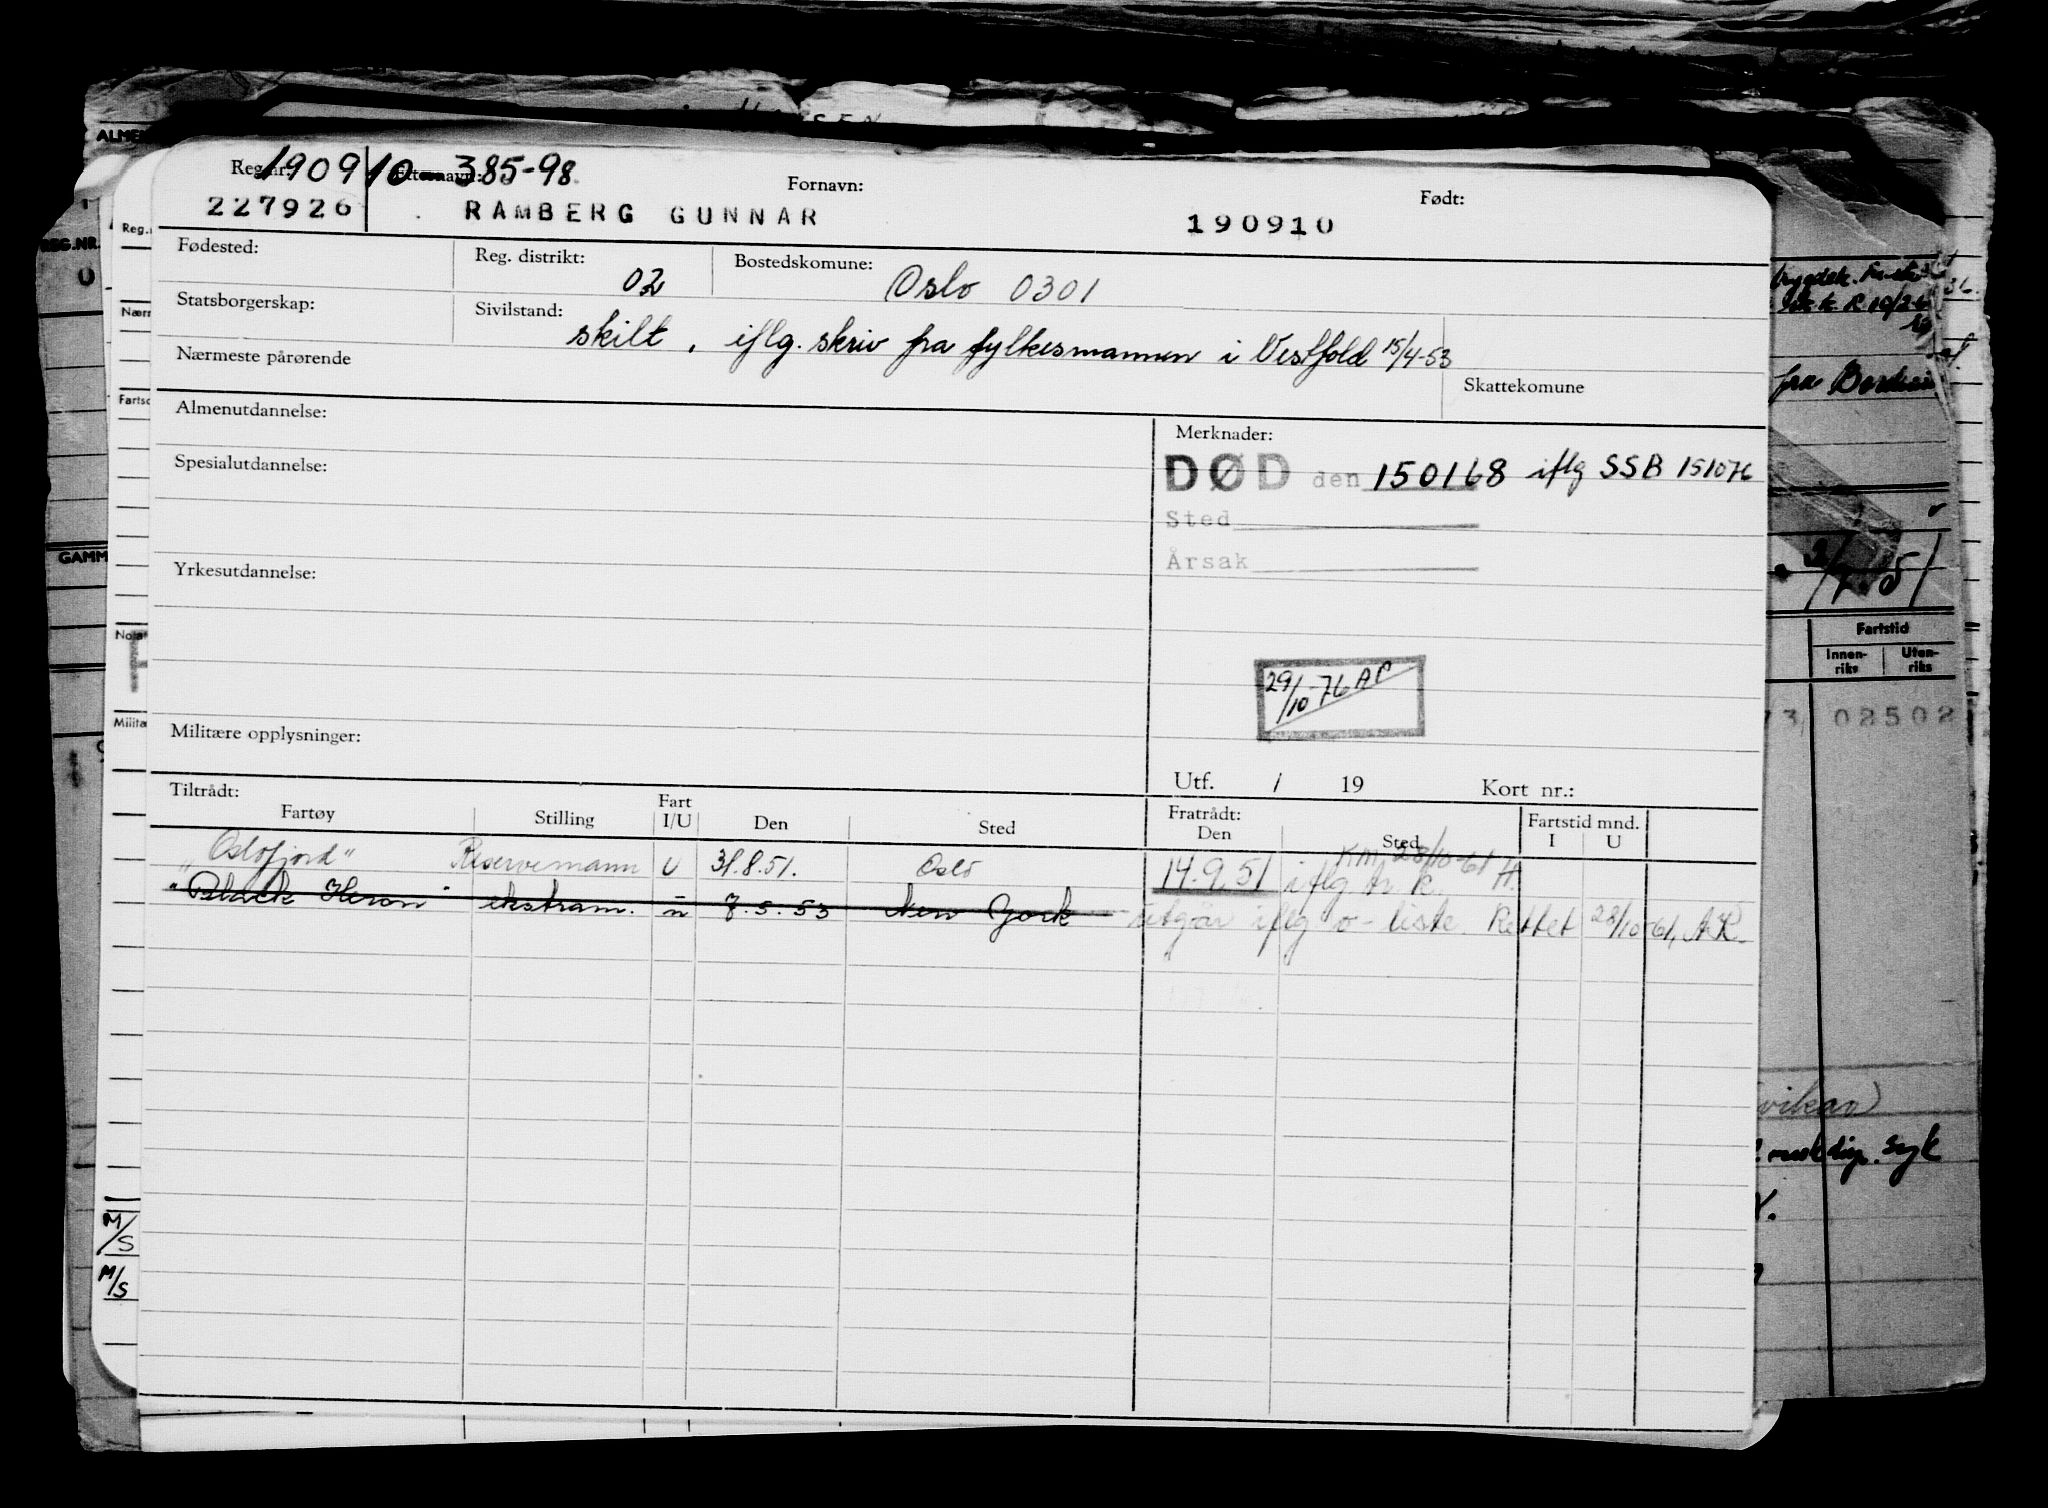 Reg.nr. 190910 385-98 Etternavn: Fornavn: Født:
227926 RAMBERG GUNNAR 190910
Fødested: Reg. distrikt: 02 Bostedskomune: Oslo 0301
Statsborgerskap: Sivilstand: skilt, iflg. skriv fra fylkesmannen i Vestfold 15/4-53
Nærmeste pårørende Skattekomune
Almenutdannelse: Merknader:
Spesialutdannelse: DØD den 150168 iflg SSB 151076
Sted
Årsak
Yrkesutdannelse:
29/10-76 AP
Militære opplysninger:
Utf. / 19 Kort nr.:
Tiltrådt: Fratrådt: Fartstid mnd.
Fartøy Stilling Fart I/U Den Sted Den Sted I U
"Oslofjord" Reservemann U 31.8.51. Oslo 14.9.51 iflg A. K. 28/10-61 H.
"Black Heron" ekstram. u 7.5.53 New York utgår iflg o-liste. Rettet 28/10-61, AK.
ALME
REG.NR.
0
GAMM
Reg.
Nær
Fartsc
Milita
M/S
M/S
fra
Fartstid
Innen-riks Uten-riks
02502
syk